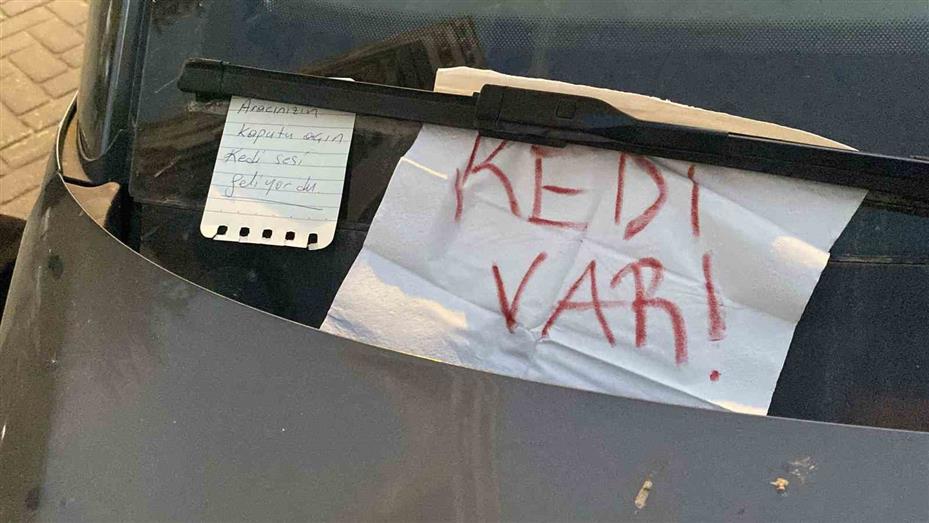 Aracınızın
kaputu açın
Kedi sesi
geliyordu
KEDİ
VAR!